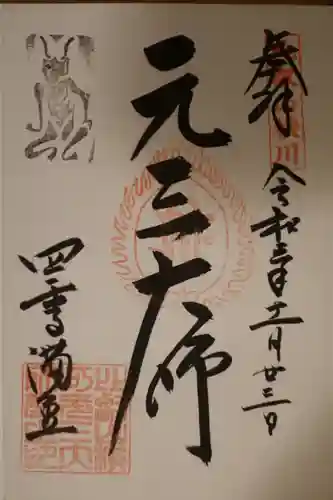 奉拝
令和三年十一月廿三日
元三大師
四季講堂